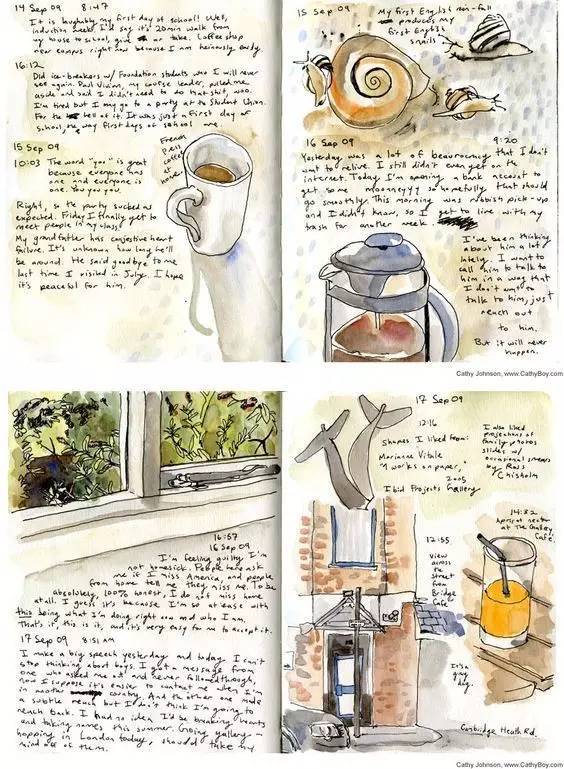 14 Sep 09 8:47
It is laughably my first day of school! Well,
induction week. I'd say it's 20min walk from
my house to school, give or take. Coffee shop
near campus right now because I am heinously early
16:12
Did ice-breakers w/ Foundation students who I will never
see again. Paul Vivian, my course leader, pulled me
aside and said I didn't need to do that shit, woo.
I'm tired but I may go to a party at the Student Union.
For the hell of it. It was just a first day of
school, the way first days of school are.
15 Sep 09
10:03 The word "you" is great
because everyone has
one and everyone is
one. You you you.
French
Press
coffee
at
home
Right, so the party sucked as
expected. Friday I finally get to
meet people in my class
My grandfather has congestive heart
failure. It's unknown how long he'll
be around. He said goodbye to me
last time I visited in July. I hope
it's peaceful for him.
15 Sep 09
My first English rain-fall
produces my
first English
snails
16 Sep 09 9:20
Yesterday was a lot of beaurocracy that I don't
want to relive. I still didn't even get on the
internet. Today I'm opening a bank account to
get some mooneyyy so hopefully that should
go smoothly. This morning was rubbish pick-up
and I didn't know, so I get to live with my
trash for another week.
I've been thinking
about him a lot
lately. I want to
call him to talk to
him in a way that
I don't want to
talk to him, just
reach out
to him.
But it will never
happen.
Cathy Johnson, www.CathyBoy.com
16:57
16 Sep 09
I'm feeling guilty I'm
not homesick. People here ask
me if I miss America, and people
from home tell me they miss me. To be
absolutely, 100% honest, I do not miss home
at all. I guess it's because I'm so at ease with
this being what I'm doing right now and who I am.
That's it, this is it, and it's very easy for me to accept it.
17 Sep 09 8:51 AM
I make a big speech yesterday and today I can't
stop thinking about boys. I got a message from
one who asked me out and never followed through,
now I suppose it's easier to contact me when I'm
in another country. And the other one made
a subtle reach but I don't think I'm going to
reach back. I had no idea I'd be breaking hearts
and taking names this summer. Going gallery-
hopping in London today, should take my
mind off of them.
17 Sep 09
12:16
Shapes I liked from:
Marianne Vitale
"Works on paper,"
2005
Ibid Projects Gallery
I also liked
projections of
family photos
slides w/
occasional smears
by Ross
Chisholm
14:32
Apricot nectar
at the Gallery
Cafe.
12:55
View
across
the
street
from
Bridge
Cafe
It's a
gray
day.
Cambridge Heath Rd.
Cathy Johnson, www.CathyBoy.com